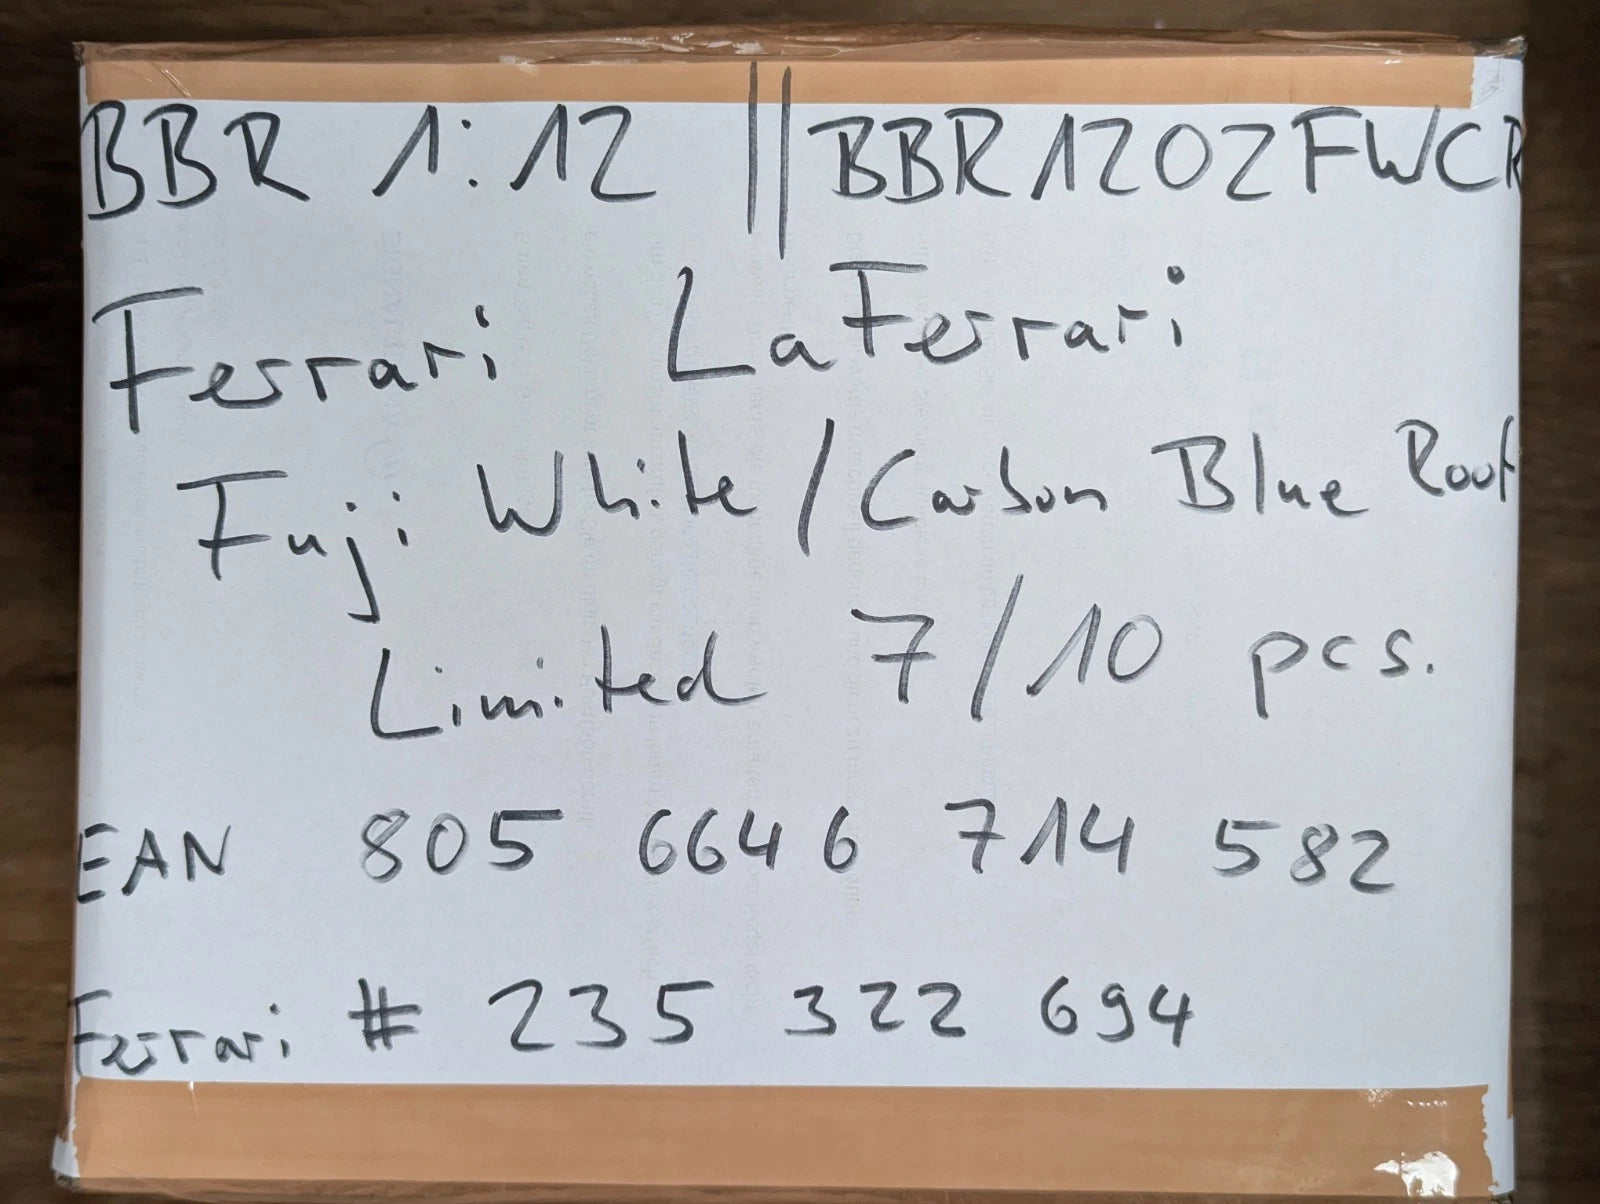 BBR 1:12 || BBR1202FWCR
Ferrari LaFerrari
Fuji White / Carbon Blue Roof
Limited 7/10 pcs.
EAN 805 6646 714 582
Ferrari # 235 322 694